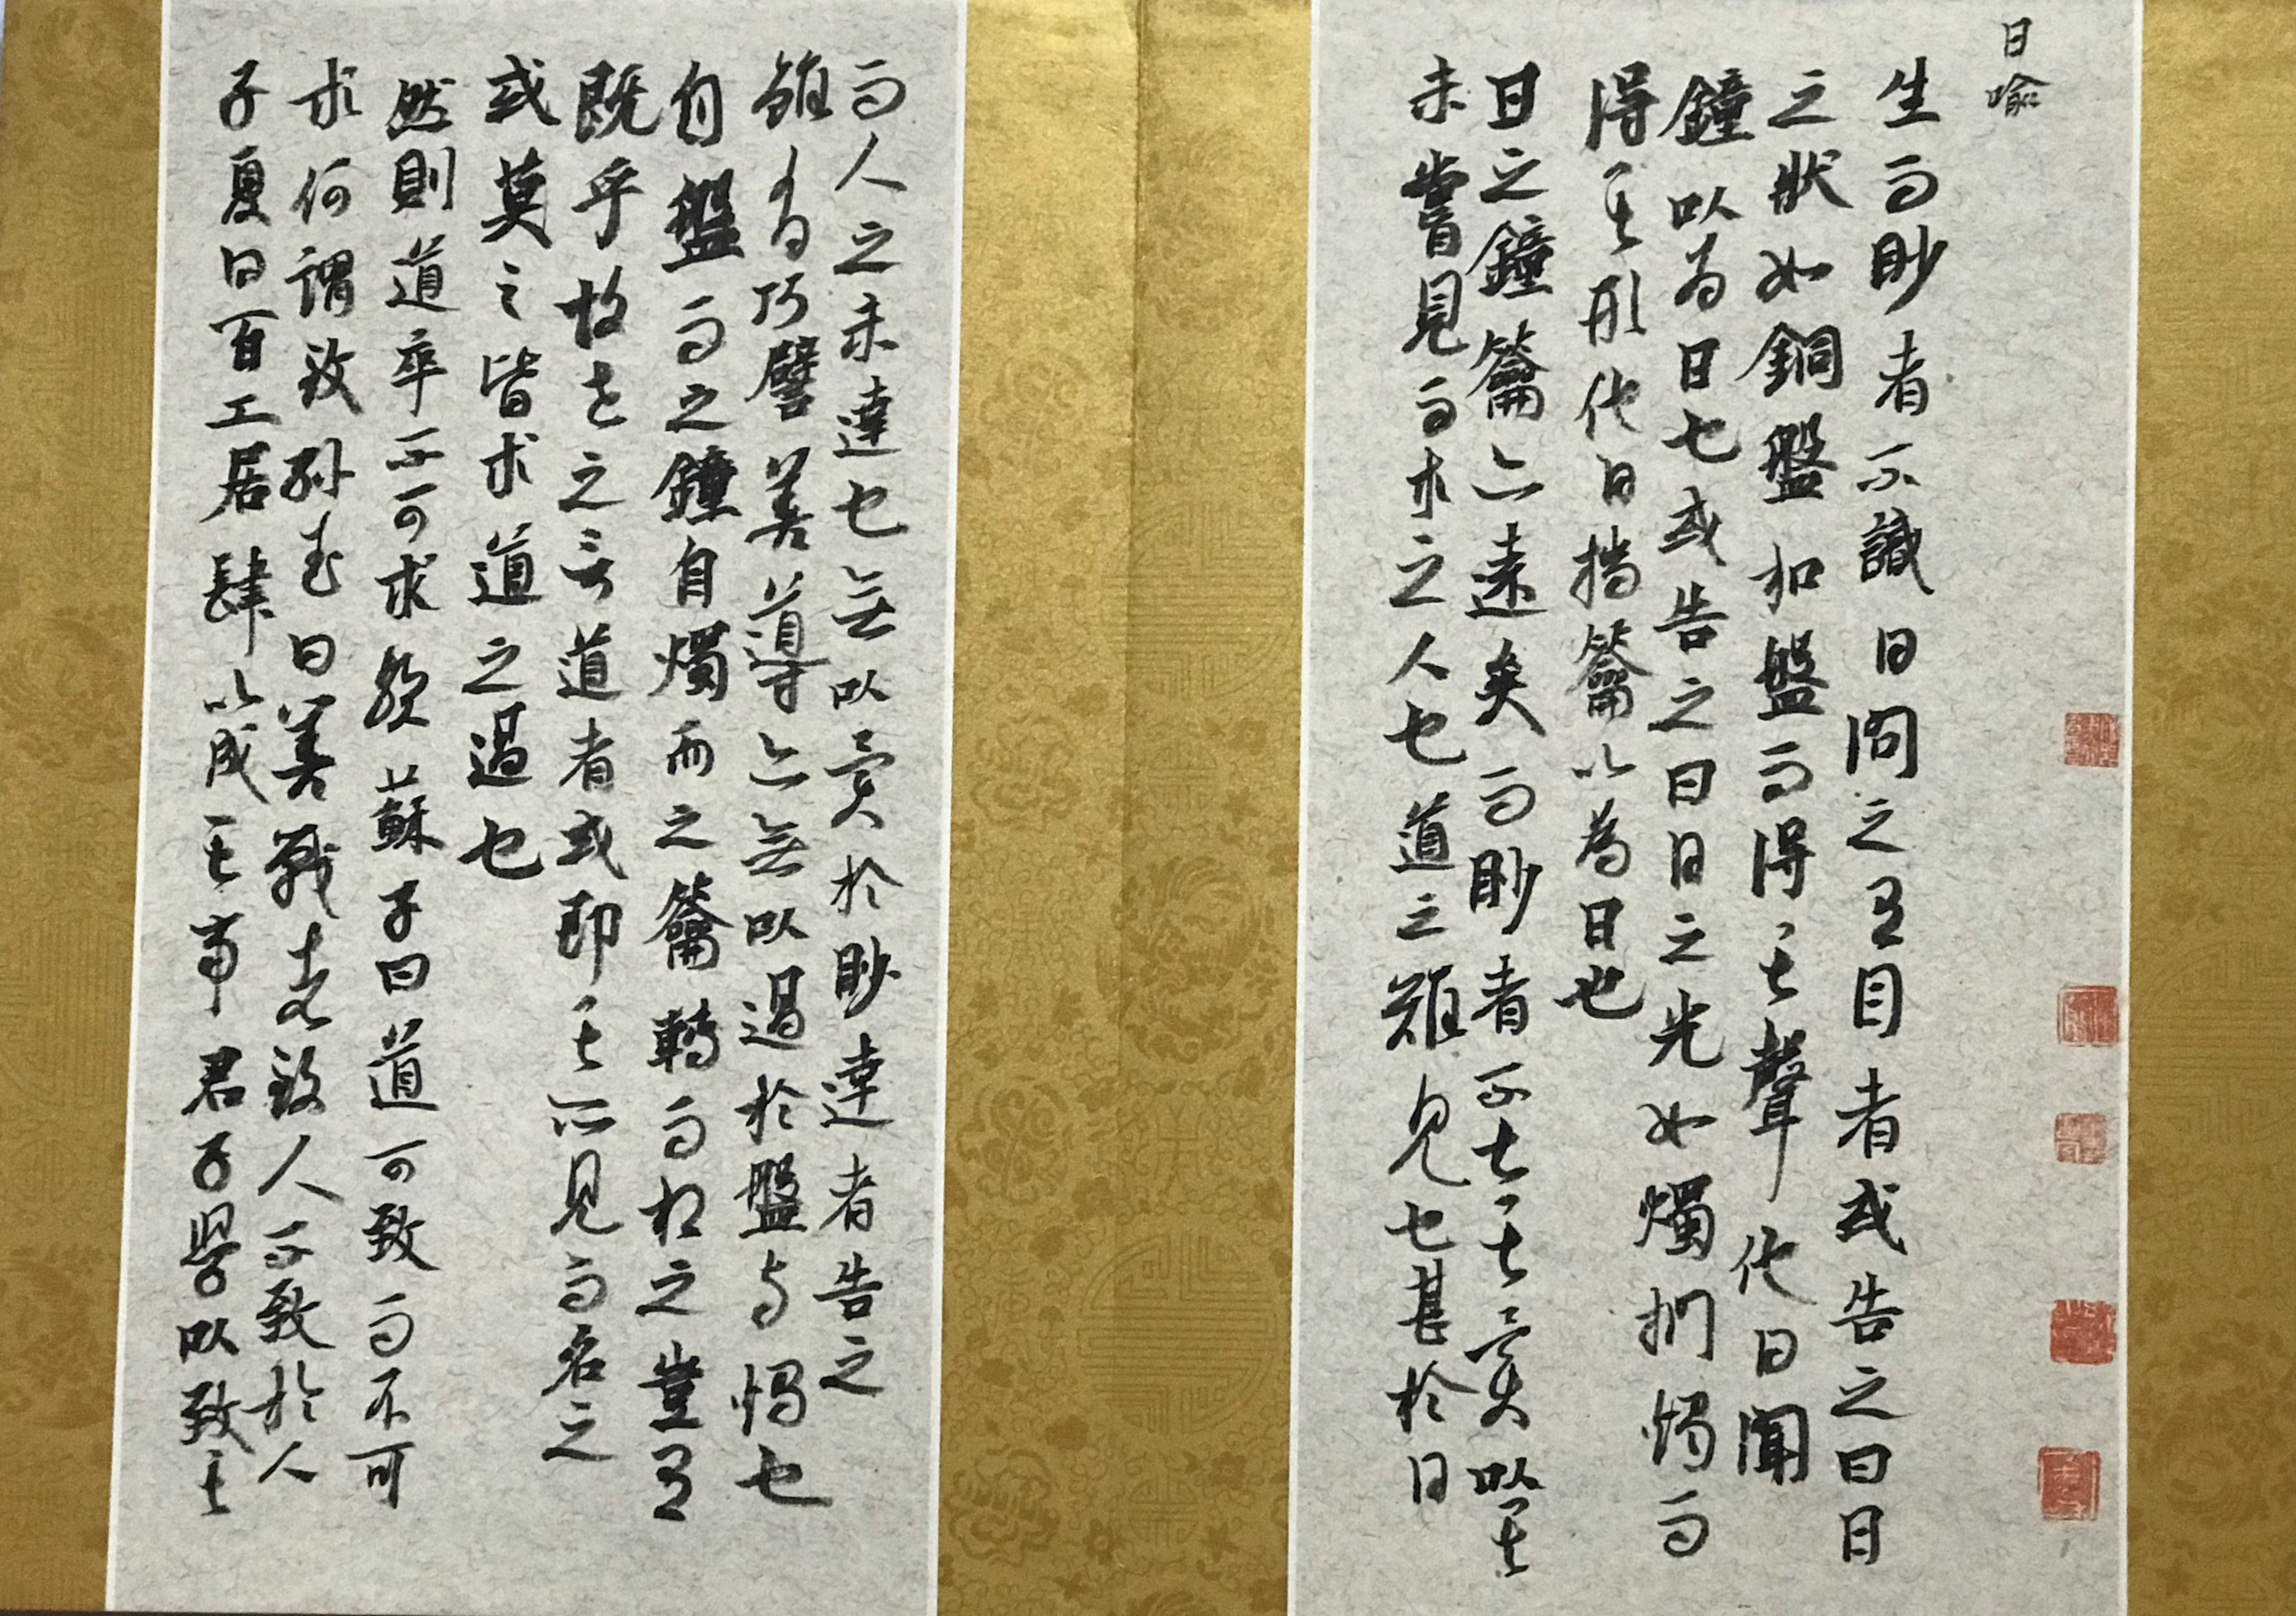 日喻
生而眇者不識日問之有目者或告之曰日
之狀如銅盤扣盤而得其聲他日聞
鐘以為日也或告之曰日之光如燭捫燭而
得其形他日揣籥以為日也
日之鐘籥亦遠矣而眇者不知其異以其
未嘗見而求之人也道之難見也甚於日
而人之未達也無以異於眇達者告之
雖有巧譬善導亦無以過於盤與燭也
自盤而之鐘自燭而之籥轉而相之豈有
既乎故世之言道者或即其所見而名之
或莫之皆求道之過也
然則道卒不可求歟蘇子曰道可致而不可
求何謂致孫武曰善戰者致人不致於人
子夏曰百工居肆以成其事君子學以致其